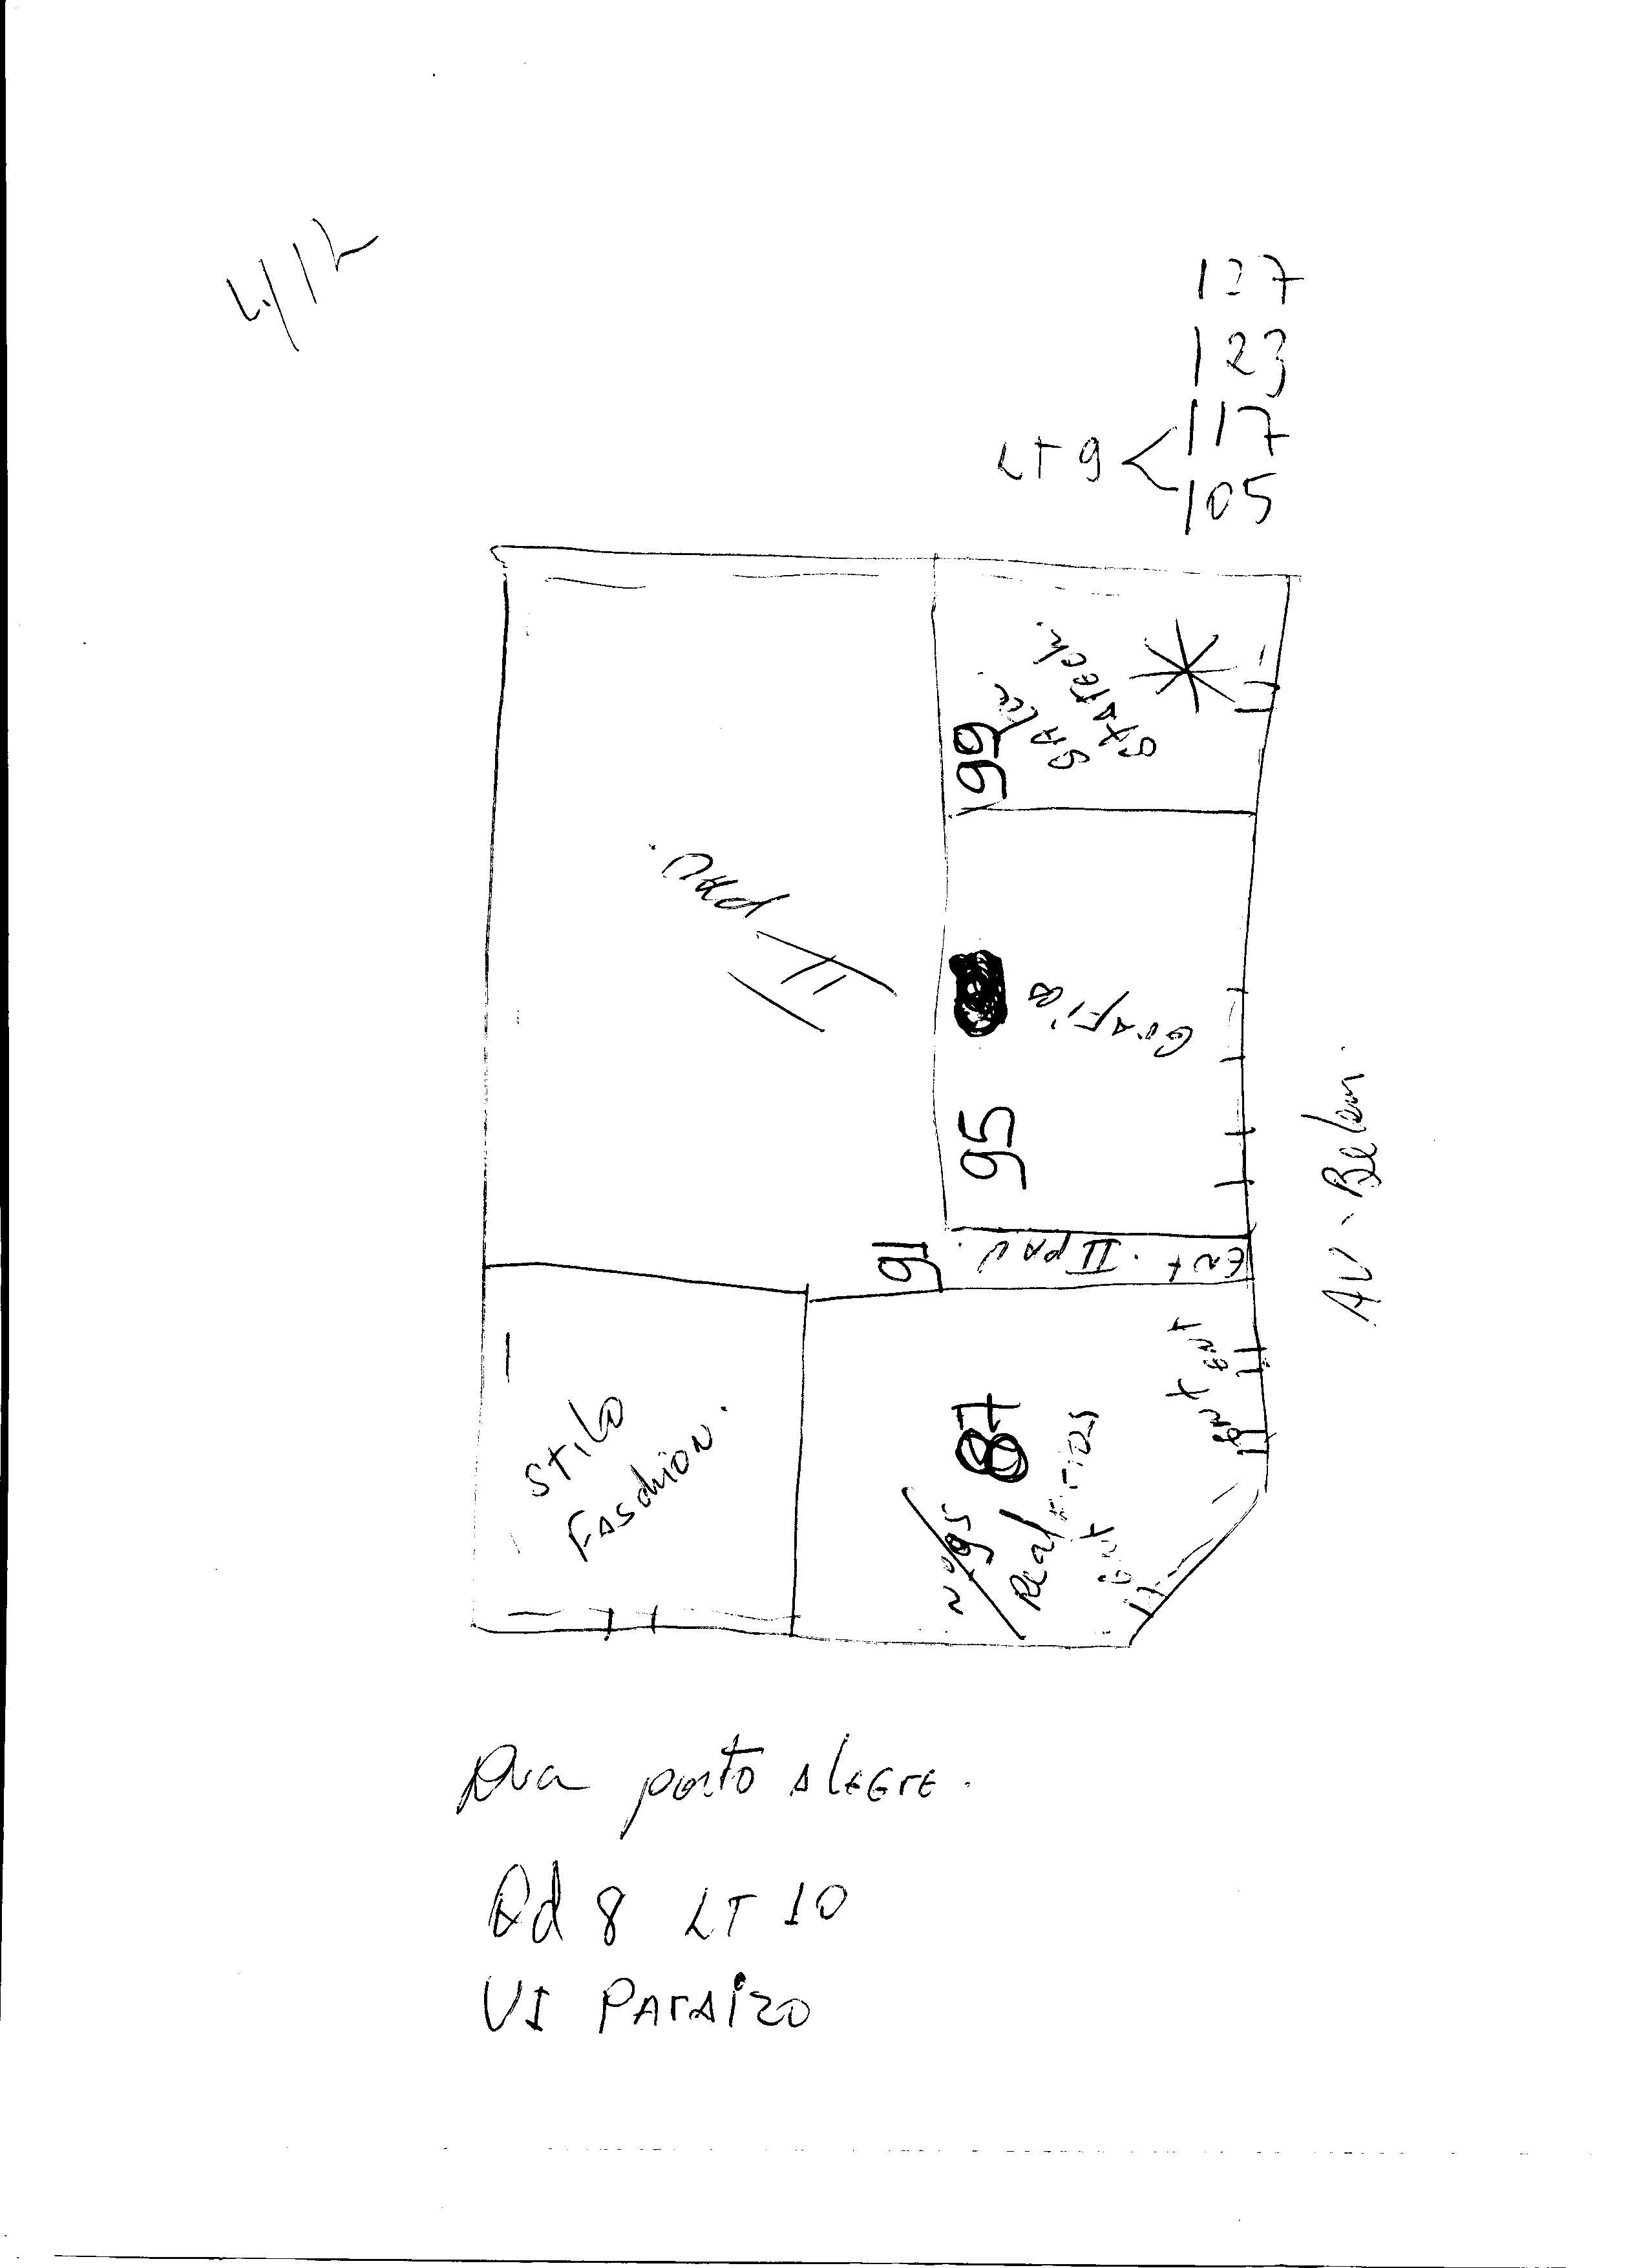 4/12
127
123
LT 9 < 117
105
99
SALA
STATECH.
II PAV.
GrAFiCA
95
AV. Belem.
91
Ent. II PAV.
ENT
ENT
87
Stilo
FASchion.
Nº 95
Real
ENT
Rua porto AlEGrE.
Qd 8 LT 10
VI PArAizo